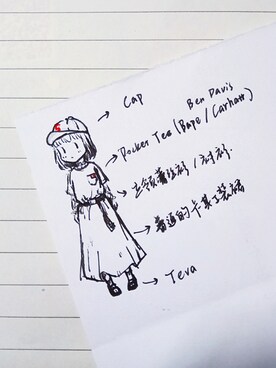 Cap
Ben Davis
Pocker Tee (Bape / Carhatt)
/ 衬衫
普通的卡其工装裙
Teva